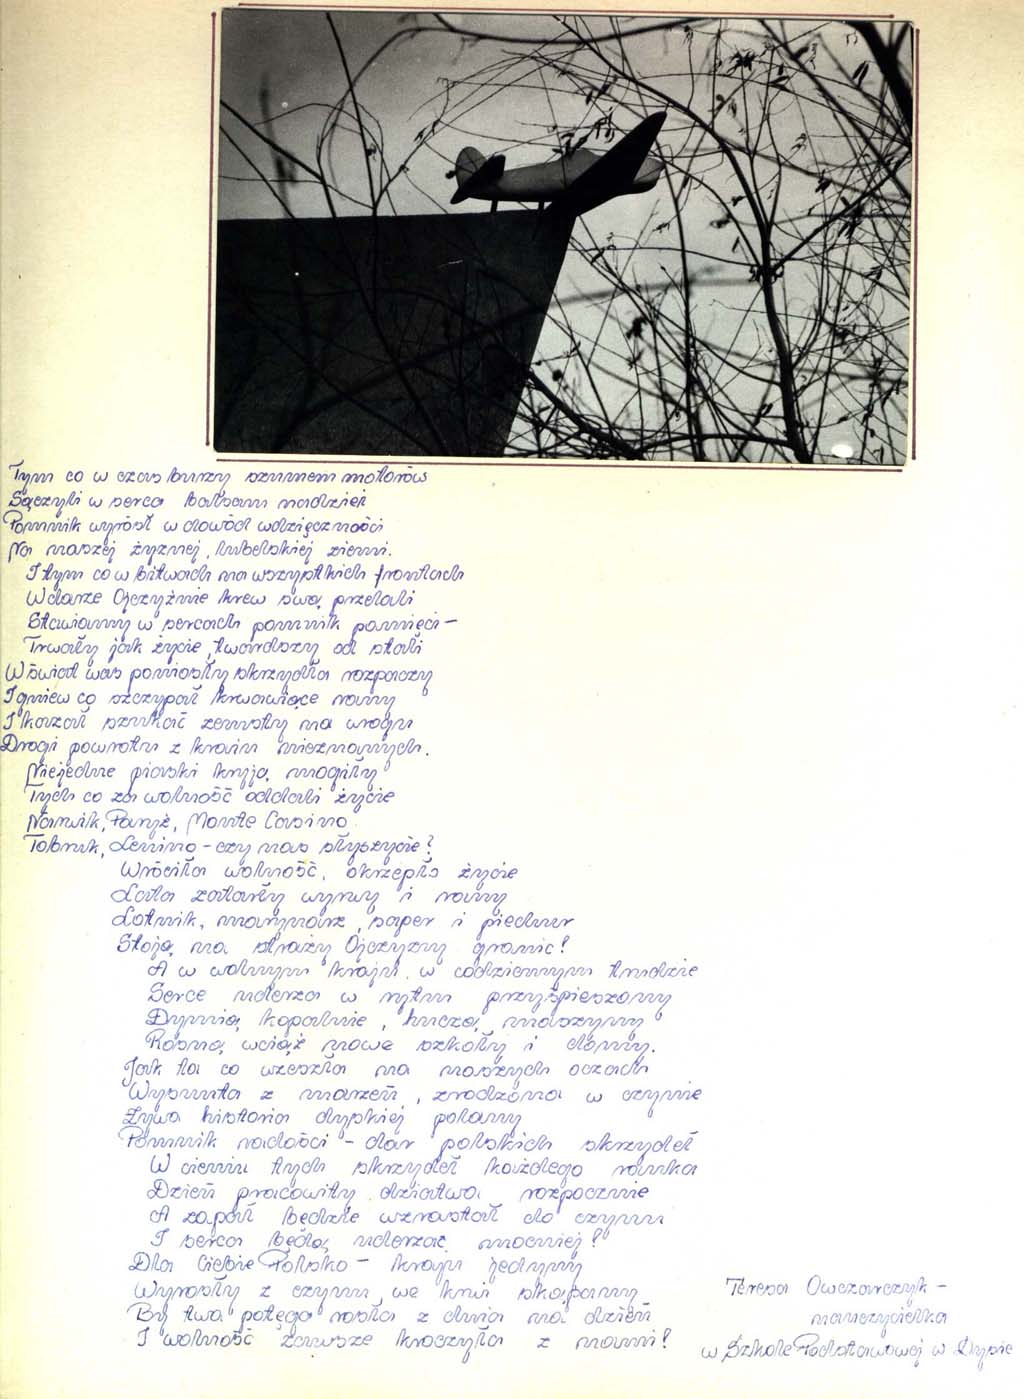 Tym co w czas burzy szumem motorów
Sączyli w serca balsam nadziei
Pomnik wyrósł w dowód wdzięczności
Na naszej żyznej, lubelskiej ziemi.
I tym co w bitwach na wszystkich frontach
W darze Ojczyźnie krew swą przelali
Stawiamy w sercach pomnik pamięci –
Trwały jak życie, twardszy od stali
W świat was poniosły skrzydła rozpaczy
I gniew co szczypał krwawiące rany
I kazał szukać zemsty na wrogu
Drogi powrotu z krain nieznanych.
Niejedne piaski kryją mogiły
Tych co za wolność oddali życie
Narwik, Paryż, Monte Casino
Tobruk, Lenino – czy nas słyszycie?
Wróciła wolność, okrzepło życie
Lata zatarły wyrwy i rany
Lotnik, marynarz, saper i piechur
Stoją na straży Ojczyzny granic!
A w wolnym kraju w codziennym trudzie
Serce uderza w rytm przyśpieszony
Dymią kopalnie, huczą maszyny
Rosną wciąż nowe szkoły i domy.
Jak ta co wzeszła na naszych oczach
Wysnuta z marzeń, zrodzona w czynie
Żywa historia dyskiej polany
Pomnik radości – dar polskich skrzydeł
W cieniu tych skrzydeł każdego ranka
Dzień pracowity dziatwa rozpocznie
A zapał będzie wzrastał do czynu
I serca będą uderzać mocniej!
Dla Ciebie Polsko – kraju jedyny
Wyrosły z czynu, we krwi skąpany
By twa potęga rosła z dnia na dzień
I wolność zawsze kroczyła z nami!
Teresa Owczarczyk –
nauczycielka
w Szkole Podstawowej w Dysie